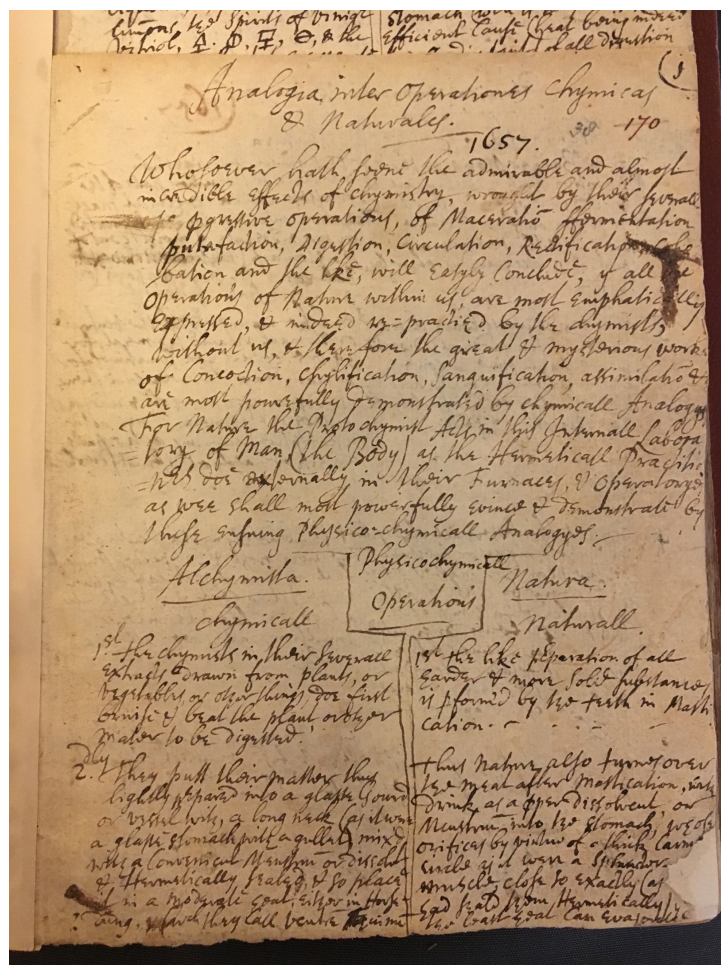 limons, the Spirits of Vinige
Vetriol, & the
Stomach
Efficient Cause (heat being indeed
of all digestion
(1
Analogia inter Operationes Chymicas
& Naturales.
38 170
1657.
Whosoever hath seene the admirable and almost
incredible Effects of Chymistry, wrought by their severall
pgressive operations, of Maceratiō ffermentation
putrifaction, Digestion, Circulation, Rectification
bation and the like, will Easyly Conclude, yt all the
Operations of Nature within us, are most Emphatically
Expressed, & indeed re=practied by the chymists,
without us, & therefore the great & mysterious works
of Concoction, Chylification, Sanguification, assimilatiō &
are most powerfully demonstrated by Chymicall Analogys
For Nature the Protochymist Acts in this Internall Labora
=tory of Man (the Body) as the Hermeticall Practitio
=ners doe externally in their Furnaces, & Operatorys
as wee shall most powerfully evince & demonstrate by
these ensuing Physico=chymicall Analogyes.
Alchymista.
Physicochymicall
Operations
Natura.
chymicall
Naturall.
1st the chymists in their severall
Extracts drawn from plants, or
vegetables or other things doe first
bruise & beat the plant or other
mater to be digested.
2dly They putt their matter thus
lightly prepared into a glasse (bound
or vessel with a long neck (as it were
a glasse stomach with a gullet) mixd
with a Convenient Menstruum or dissolv
& Hermetically sealed, & so place
it in a moderate heat, either in Horse
dung, which they call venter Equinus
1st the like preparation of all
harder & more solid substances
is pformed by the teeth in Masti
cation.
thus Nature also turnes over
the meat after Mastication, with
drink as a pper dissolvent, or
Menstruum into the Stomach, whose
orifices by virtue of a thick Carn
circle as it were a Sphincter
muscle, close so exactly (as
had seald them Hermetically)
the least heat Can Evaporate